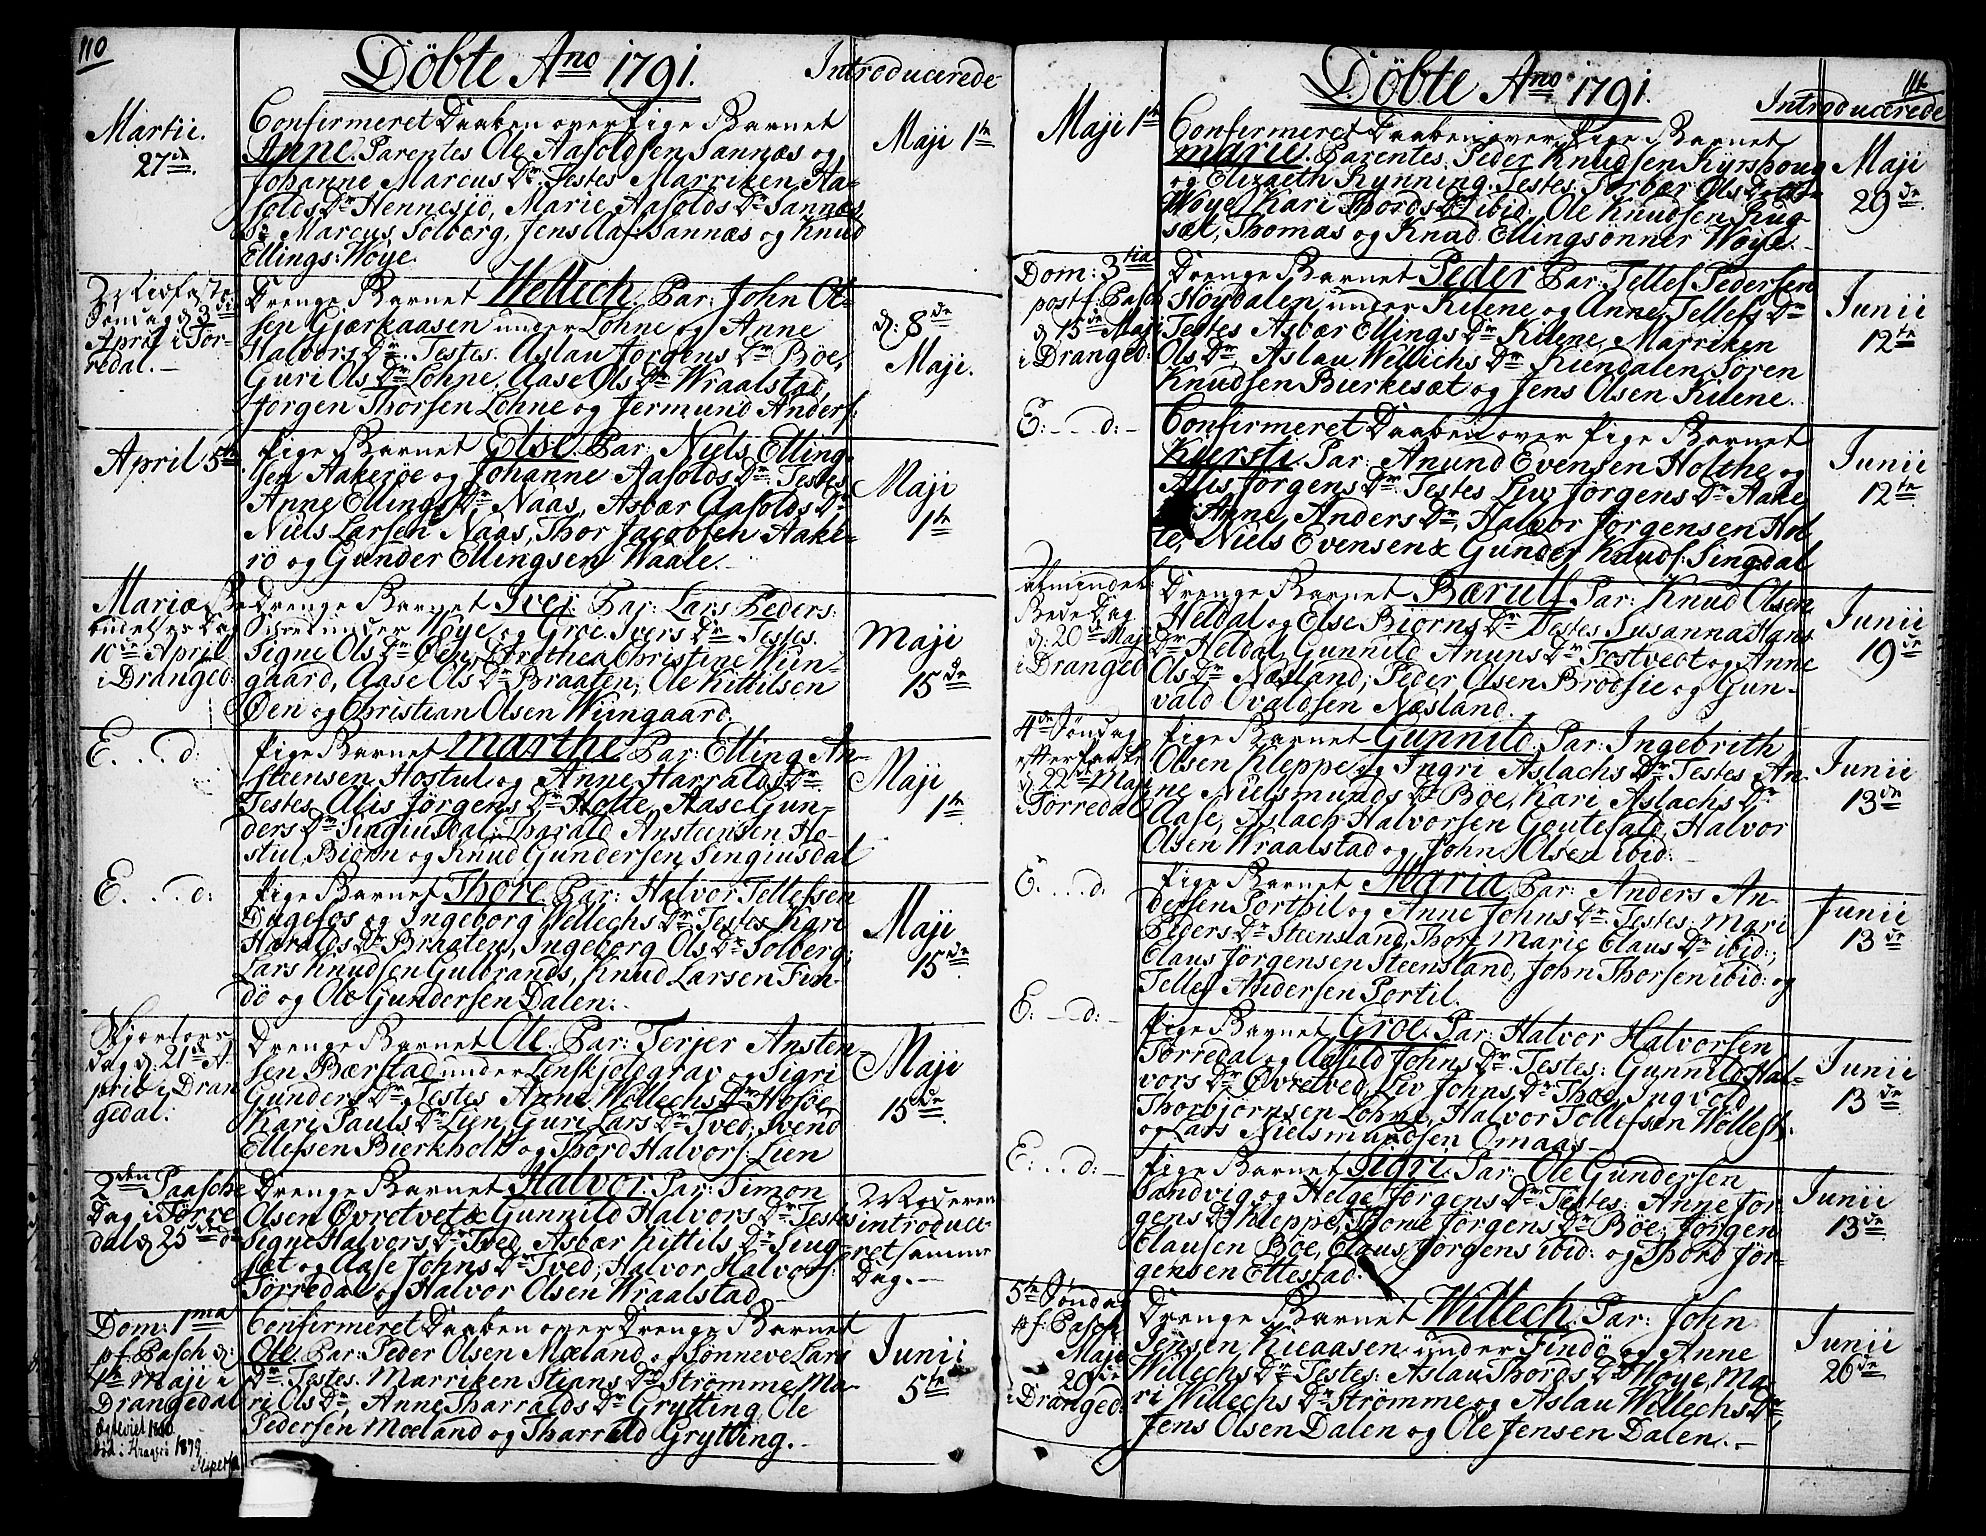 110
Döbte Ano 1791.
Introducerede
Martii.
27de
Confirmeret Daaben over Pige Barnet
Anne. Parentes Ole Aasoldsen Sannæs og
Johanne Marcus Dr. Testes Marriken Aa-
solds Dr Hennesjö, Marie Aasolds Dr Sannæs,
Marcus Solberg, Jens Sannæs og Knud
Ellings: Woye.
Maji 1te
Söndag d: 3de
April i Tör-
redal.
Drenge Barnet Wellech. Par: John Ol-
sen Gjærkaasen under Lohne og Anne
Halvors Dr. Testes. Aslau Jorgens Dr Böe,
Guri Ols Dr Lohne, Aase Ols Dr Wraalstad,
Jorgen Thorsen Lohne og Jermund Anders:
d: 8de
Maji.
April 5te
Pige Barnet Else. Par: Niels Elling-
sen Aakeröe og Johanne Aasolds Dr. Testes
Anne Ellings Dr Naas, Asbær Aasolds Dr
Niels Larsen Naas, Thor Jacobsen Aake-
rö og Gunder Ellingsen Waale.
Maji
1te
Mariæ Be-
budelses Dag
10de April
i Dranged:
Drenge Barnet Iver. Par: Lars Peders:
under Woye og Groe Ivers Dr Testes.
Signe Ols Dr Öen, Dorothea Christine Wiin-
gaard, Aase Ols Dr Braaten, Ole Kittilsen
Öen og Christian Olsen Wiingaard.
Maji
15de
E...d:
Pige Barnet Marthe. Par: Elling An-
steensen Hostul og Anne Harralds Dr.
Testes Alis Jörgens Dr Holte, Aase Gun-
ders Dr Singiusdal, Tharald Anstensen Ho-
stul, Biörn og Knud Gundersen Singiusdal
Maji
1te
E...d:
Pige Barnet Thore. Par: Halvor Tellefsen
og Ingeborg Wellechs Dr. Testes Kari
Haralds Dr Braaten, Ingeborg Ols Dr Solberg,
Lars Knudsen Gulbrands, Knud Larsen Fin-
dö og Ole Gundersen Dalen.
Maji
15de
Skjertors
dag d: 21de A-
pril i Dran
gedal.
Drenge Barnet Ole. Par: Terjer Ansten-
sen Bærstad under Lenskjoldgrav og Sigri
Gunders Dr. Testes Anne Wellechs Dr Hosöe,
Kari Pauls Dr Lien, Guri Lars Dr Tved, Svend
Ellefsen Bierkholt og Thord Halvors: Lien
Maji
15de
2den Paasche
Dag i Törre
dal d: 25de
Drenge Barnet Halvor. Par: Simon
Olsen Övretvet & Gunnild Halvors Dr. Testes
Signe Halvors Dr Tved, Asbær Kittils Dr
og Aase Johns Dr Tved, Halvor Halvors:
Törredal og Halvor Olsen Wraalstad
Moderen
introduce-
ret samme
Dag.
Dom: 1ma
p: f: Pasch d:
1te Maji i
Drangedal
Confirmeret Daaben over Drenge Barnet
Ole. Par: Peder Olsen Mæland og Sönneve Lars
Dr. Testes. Marriken Stians Dr Strömme, Ma-
ri Ols Dr, Anne Tharralds Dr Grytting, Ole
Pedersen Mæland og Tharrald Grytting.
Junii
5te
Död i Kragerö 1879
111
Döbte Ano 1791.
Introducerede
Maji 1te
Confirmeret Daaben over Pige Barnet
Marie. Parentes. Peder Knudsen
og Elizaeth Rynning. Testes. Torbær Ols Dr
Woye, Kari Thords Dr ibid, Ole Knudsen Rug-
sæt, Thomas og Knud Ellingsönner Woye.
Maji
29de
Dom: 3tia
post f: Pasch
d: 15de Maji
i Dranged:
Drenge Barnet Peder. Par: Tellef Pedersen
Höydalen under Kilene og Anne Tellefs Dr
Testes Asbær Ellings Dr Kilene, Marriken
Ols Dr, Aslau Wellechs Dr Kiendalen, Sören
Knudsen Bierkesæt og Jens Olsen Kilene.
Junii
12te
E:...d:
Confirmeret Daaben over Pige Barnet
Kiersti. Par: Anund Evensen Holthe og
Alis Jörgens Dr. Testes Liv Jörgens Dr Aake
Anne Anders Dr, Halvor Jorgensen Hol
te, Niels Evensen & Gunder Knuds: Singdal
Junii
12te
Almindel:
Bede Dag
d: 20de Maji
i Dranged
Drenge Barnet Bærulf. Par: Knud Olsen
Heldal og Else Biörns Dr. Testes Susanna Hans
Dr Heldal, Gunnild Anuns Dr Tostvedt og Anne
Ols Dr Næsland, Peder Olsen Bröesie og Gun-
vald Ovaldsen Næsland.
Junii
19de
4de Söndag
efter Pasche
d: 22de Maji
i Törredal
Pige Barnet Gunnild. Par: Ingebrith
Olsen Kleppe og Ingri Aslachs Dr. Testes An-
ne Nielsmunds Dr Böe, Kari Aslachs Dr
Aase, Aslach Halvorsen Goutefald, Halvor
Olsen Wraalstad og John Olsen ibid:
Junii
13de
E:...d:
Pige Barnet Maria. Par: Anders An-
dersen Porthil og Anne Johns Dr. Testes: Mari
Peders Dr Steensland, Thore Marie Claus Dr ibid:,
Claus Jörgensen Steensland, John Thorsen ibid: og
Tellef Andersen Portil.
Junii
13de
E:...d:
Pige Barnet Groe. Par: Halvor Halvorsen
Törredal og Aasild Johns Dr. Testes: Gunnild Hal-
vors Dr Övretved, Liv Johns Dr Ingvold
Thorbjornsen Lohne, Halvor Tollefsen
og Lars Nielsmundsen Omaas
Junii
13de
E:...d:
Pige Barnet Sigri. Par: Ole Gundersen
Sandvig og Helge Jörgens Dr. Testes: Anne Jör-
gens Dr Kleppe, Thone Jörgens Dr Böe, Jörgen
Clausen Böe, Claus Jörgens ibid: og Thord Jör-
gensen Ettestad.
Junii
13de
5te Söndag
p: f: Pasch.
Maji
29de
i Dranged:
Drenge Barnet Willech. Par: John
Jensen under Findö og Anne
Willechs Dr. Testes: Aslau Thords Dr Woye, Ma-
ri Willechs Dr Strömme og Aslau Willechs Dr,
Jens Olsen Dalen og Ole Jensen Dalen.
Junii
26de